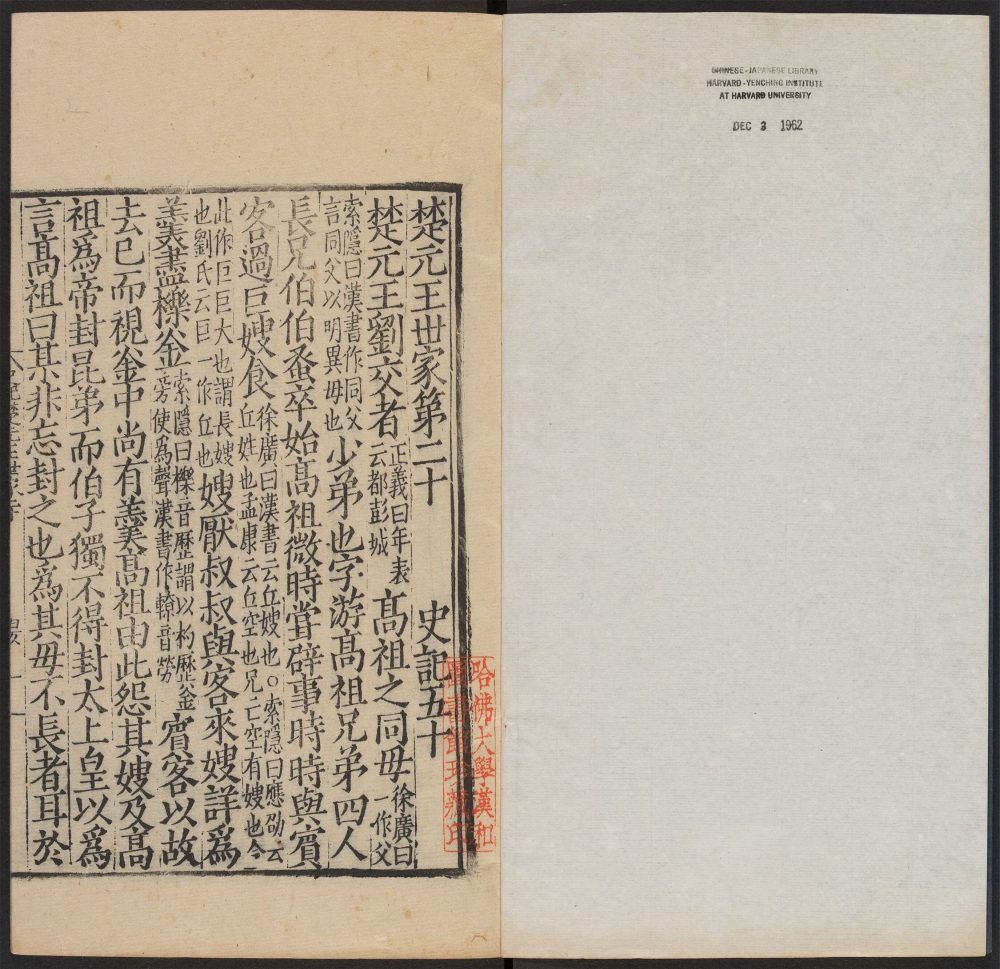 CHINESE-JAPANESE LIBRARY
HARVARD-YENCHING INSTITUTE
AT HARVARD UNIVERSITY
DEC 3 1962
楚元王世家第二十 史記五十
楚元王劉交者正義曰年表云都彭城高祖之同母徐廣曰一作父
索隱曰漢書作同父言同父以明異母也少弟也字游高祖兄弟四人
長兄伯伯蚤卒始高祖微時嘗辟事時時與賓
客過巨嫂食徐廣曰漢書云丘嫂也○索隱曰應劭云丘姓也孟康云丘空也兄亡空有嫂也今
此作巨巨大也謂長嫂也劉氏云巨一作丘也嫂厭叔叔與客來嫂詳為
羹羹盡櫟釜索隱曰櫟音歷謂以杓歷釜旁使為聲漢書作轑音勞賓客以故
去已而視釜中尚有羹高祖由此怨其嫂及高
祖為帝封昆弟而伯子獨不得封太上皇以為
言高祖曰某非忘封之也為其母不長者耳於
哈佛大學漢和
圖書館珍藏印